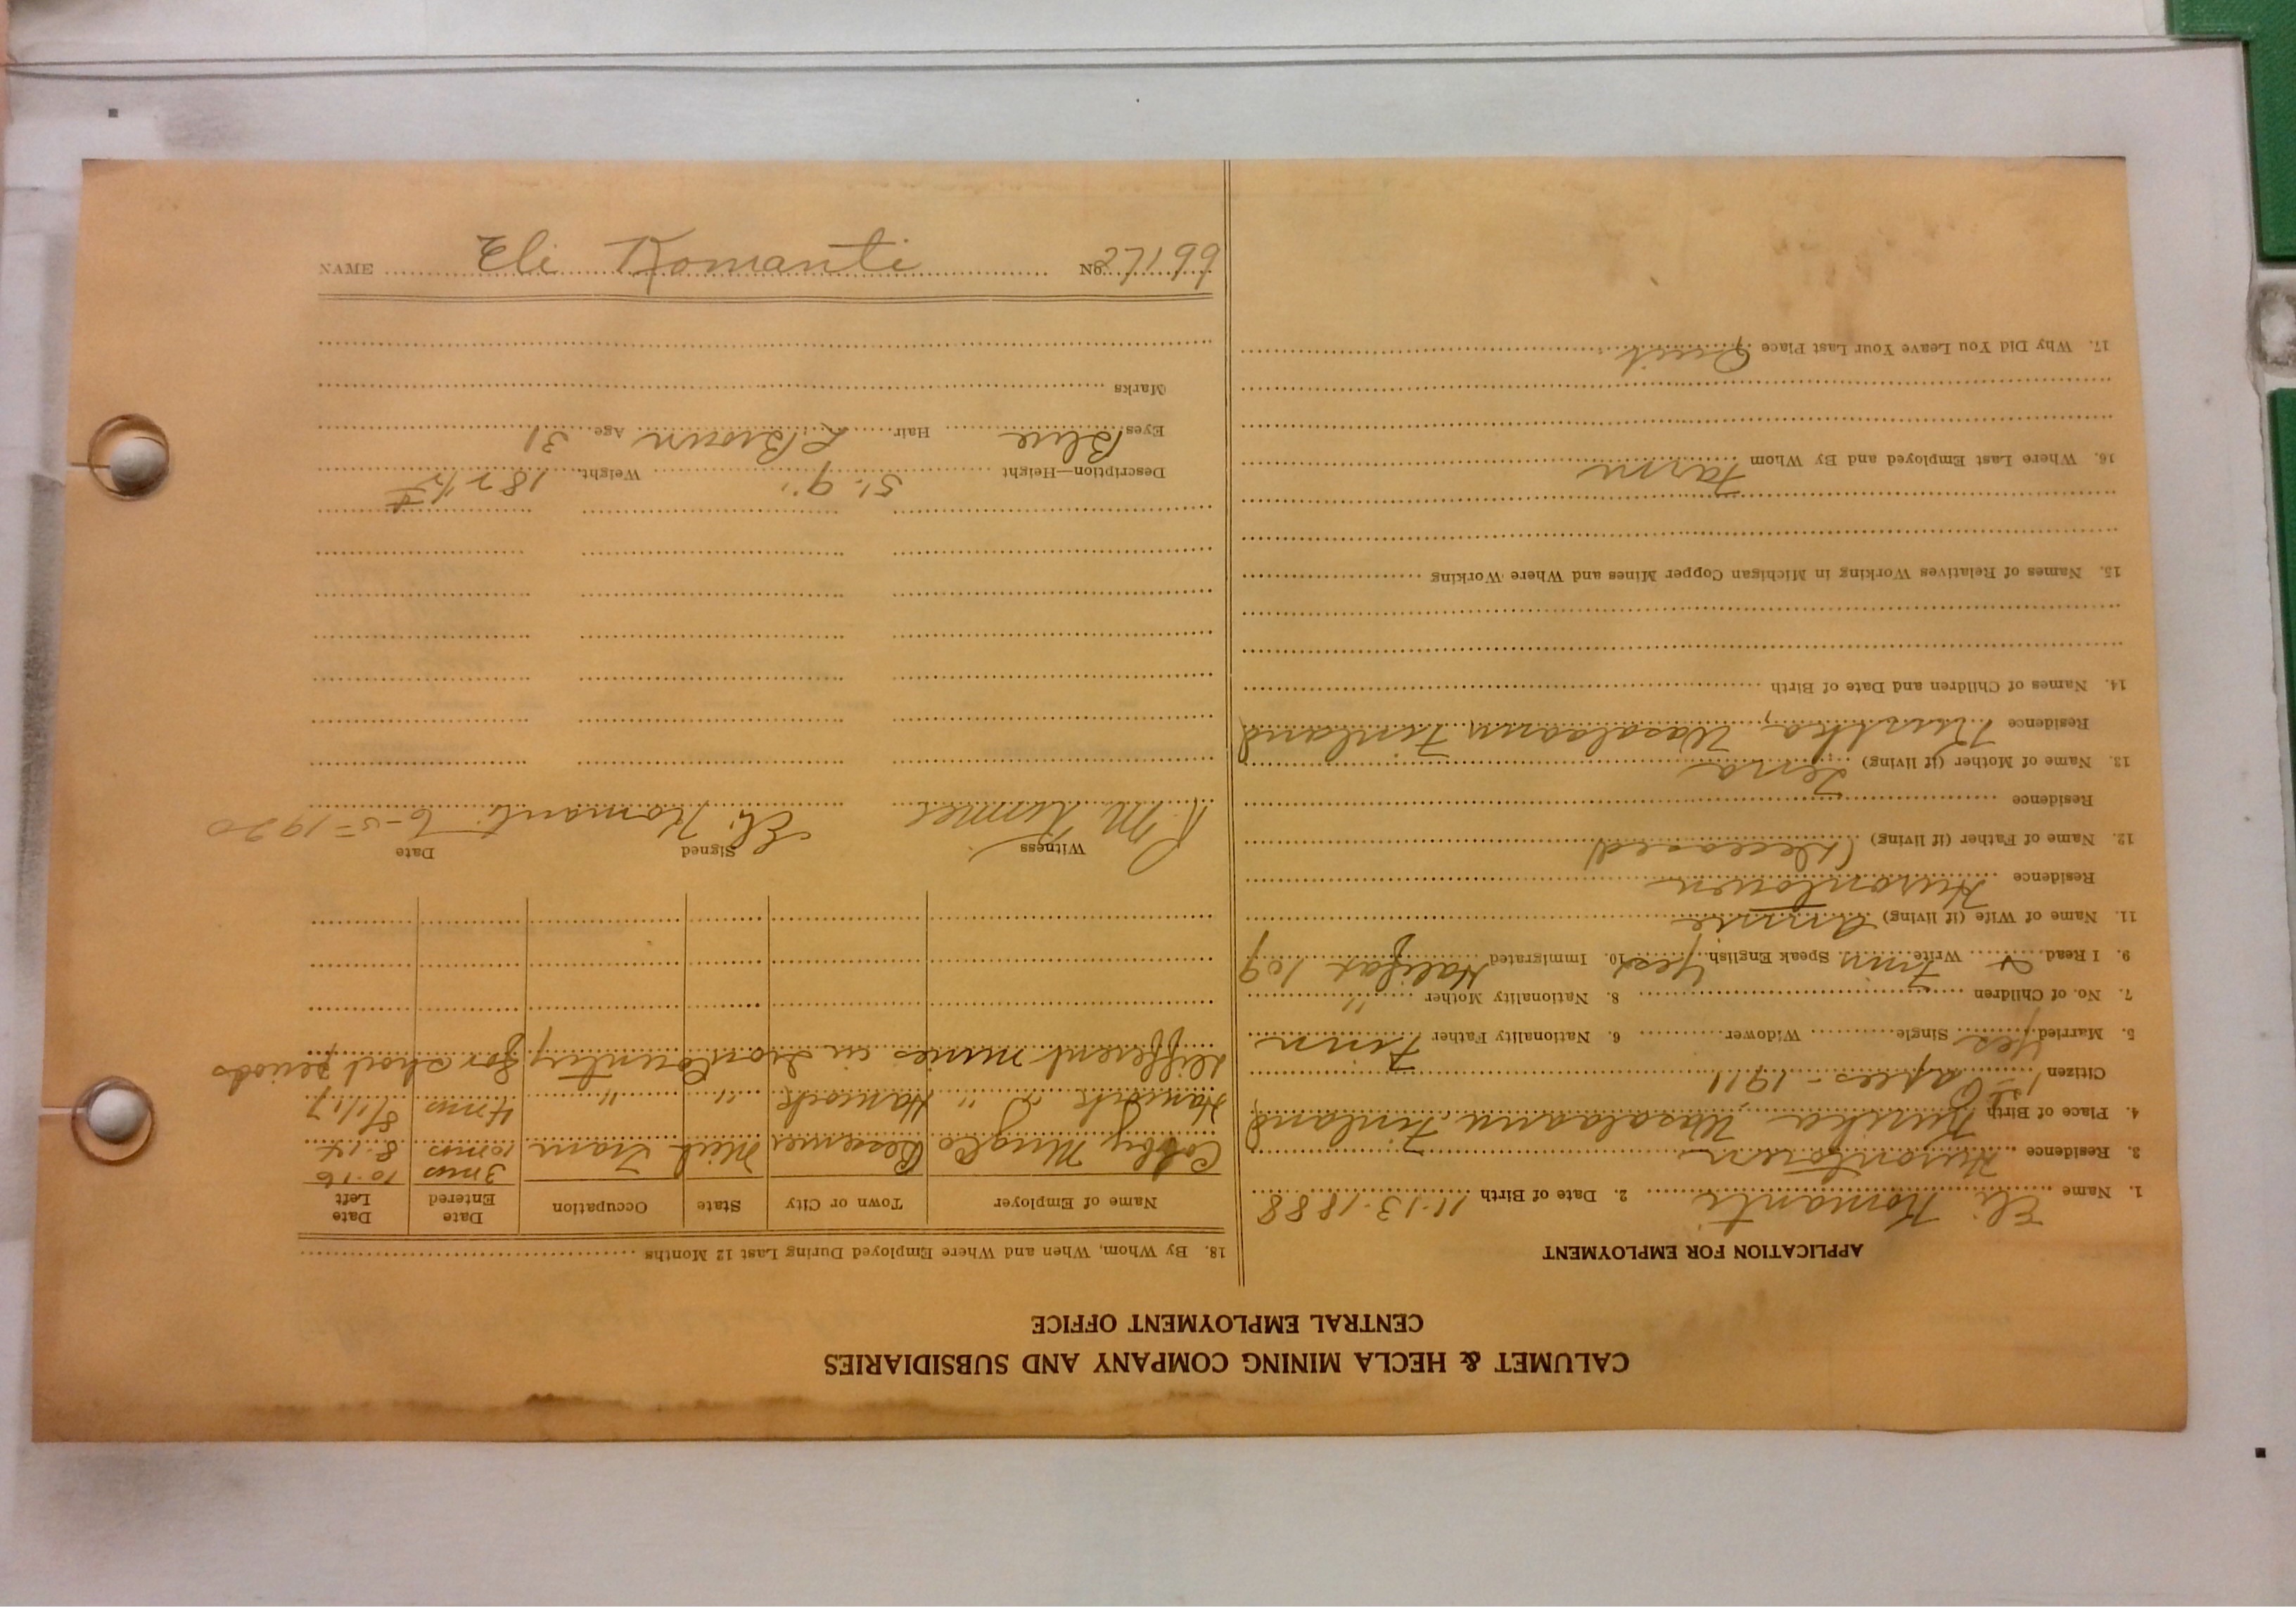 CALUMET & HECLA MINING COMPANY AND SUBSIDIARIES
CENTRAL EMPLOYMENT OFFICE
APPLICATION FOR EMPLOYMENT
1. Name Eli Komanti 2. Date of Birth 11-13-1888
3. Residence Hurontown
4. Place of Birth Kurika, Wasalaani Finland
Citizen 1st Papers - 1911
5. Married Yes Single Widower 6. Nationality Father Finn
7. No. of Children 8. Nationality Mother "
9. I Read & Write Finn Speak English Yes 10. Immigrated Halifax 109
11. Name of Wife (if living) Annie
Residence Hurontown
12. Name of Father (if living) (deceased)
Residence
13. Name of Mother (if living) Lena
Residence Kurika, Wasalaani, Finland
14. Names of Children and Date of Birth
15. Names of Relatives Working in Michigan Copper Mines and Where Working
16. Where Last Employed and By Whom Farm
17. Why Did You Leave Your Last Place Quit
18. By Whom, When and Where Employed During Last 12 Months
Name of Employer Town or City State Occupation Date Entered Date Left
3 mos 10-16
Colby Mng Co Bessemer Mich Tram 10 mos 8-14
Hancock " " Hancock " " 4 mos 8/1/17
Different mines in Iron Country for short periods
Witness Signed Date
R. M. Eli Komanti 6-5-1920
Description—Height 5' 9" Weight 182 1/2 #
Eyes Blue Hair L Brown Age 31
Marks
NAME Eli Komanti No. 27199